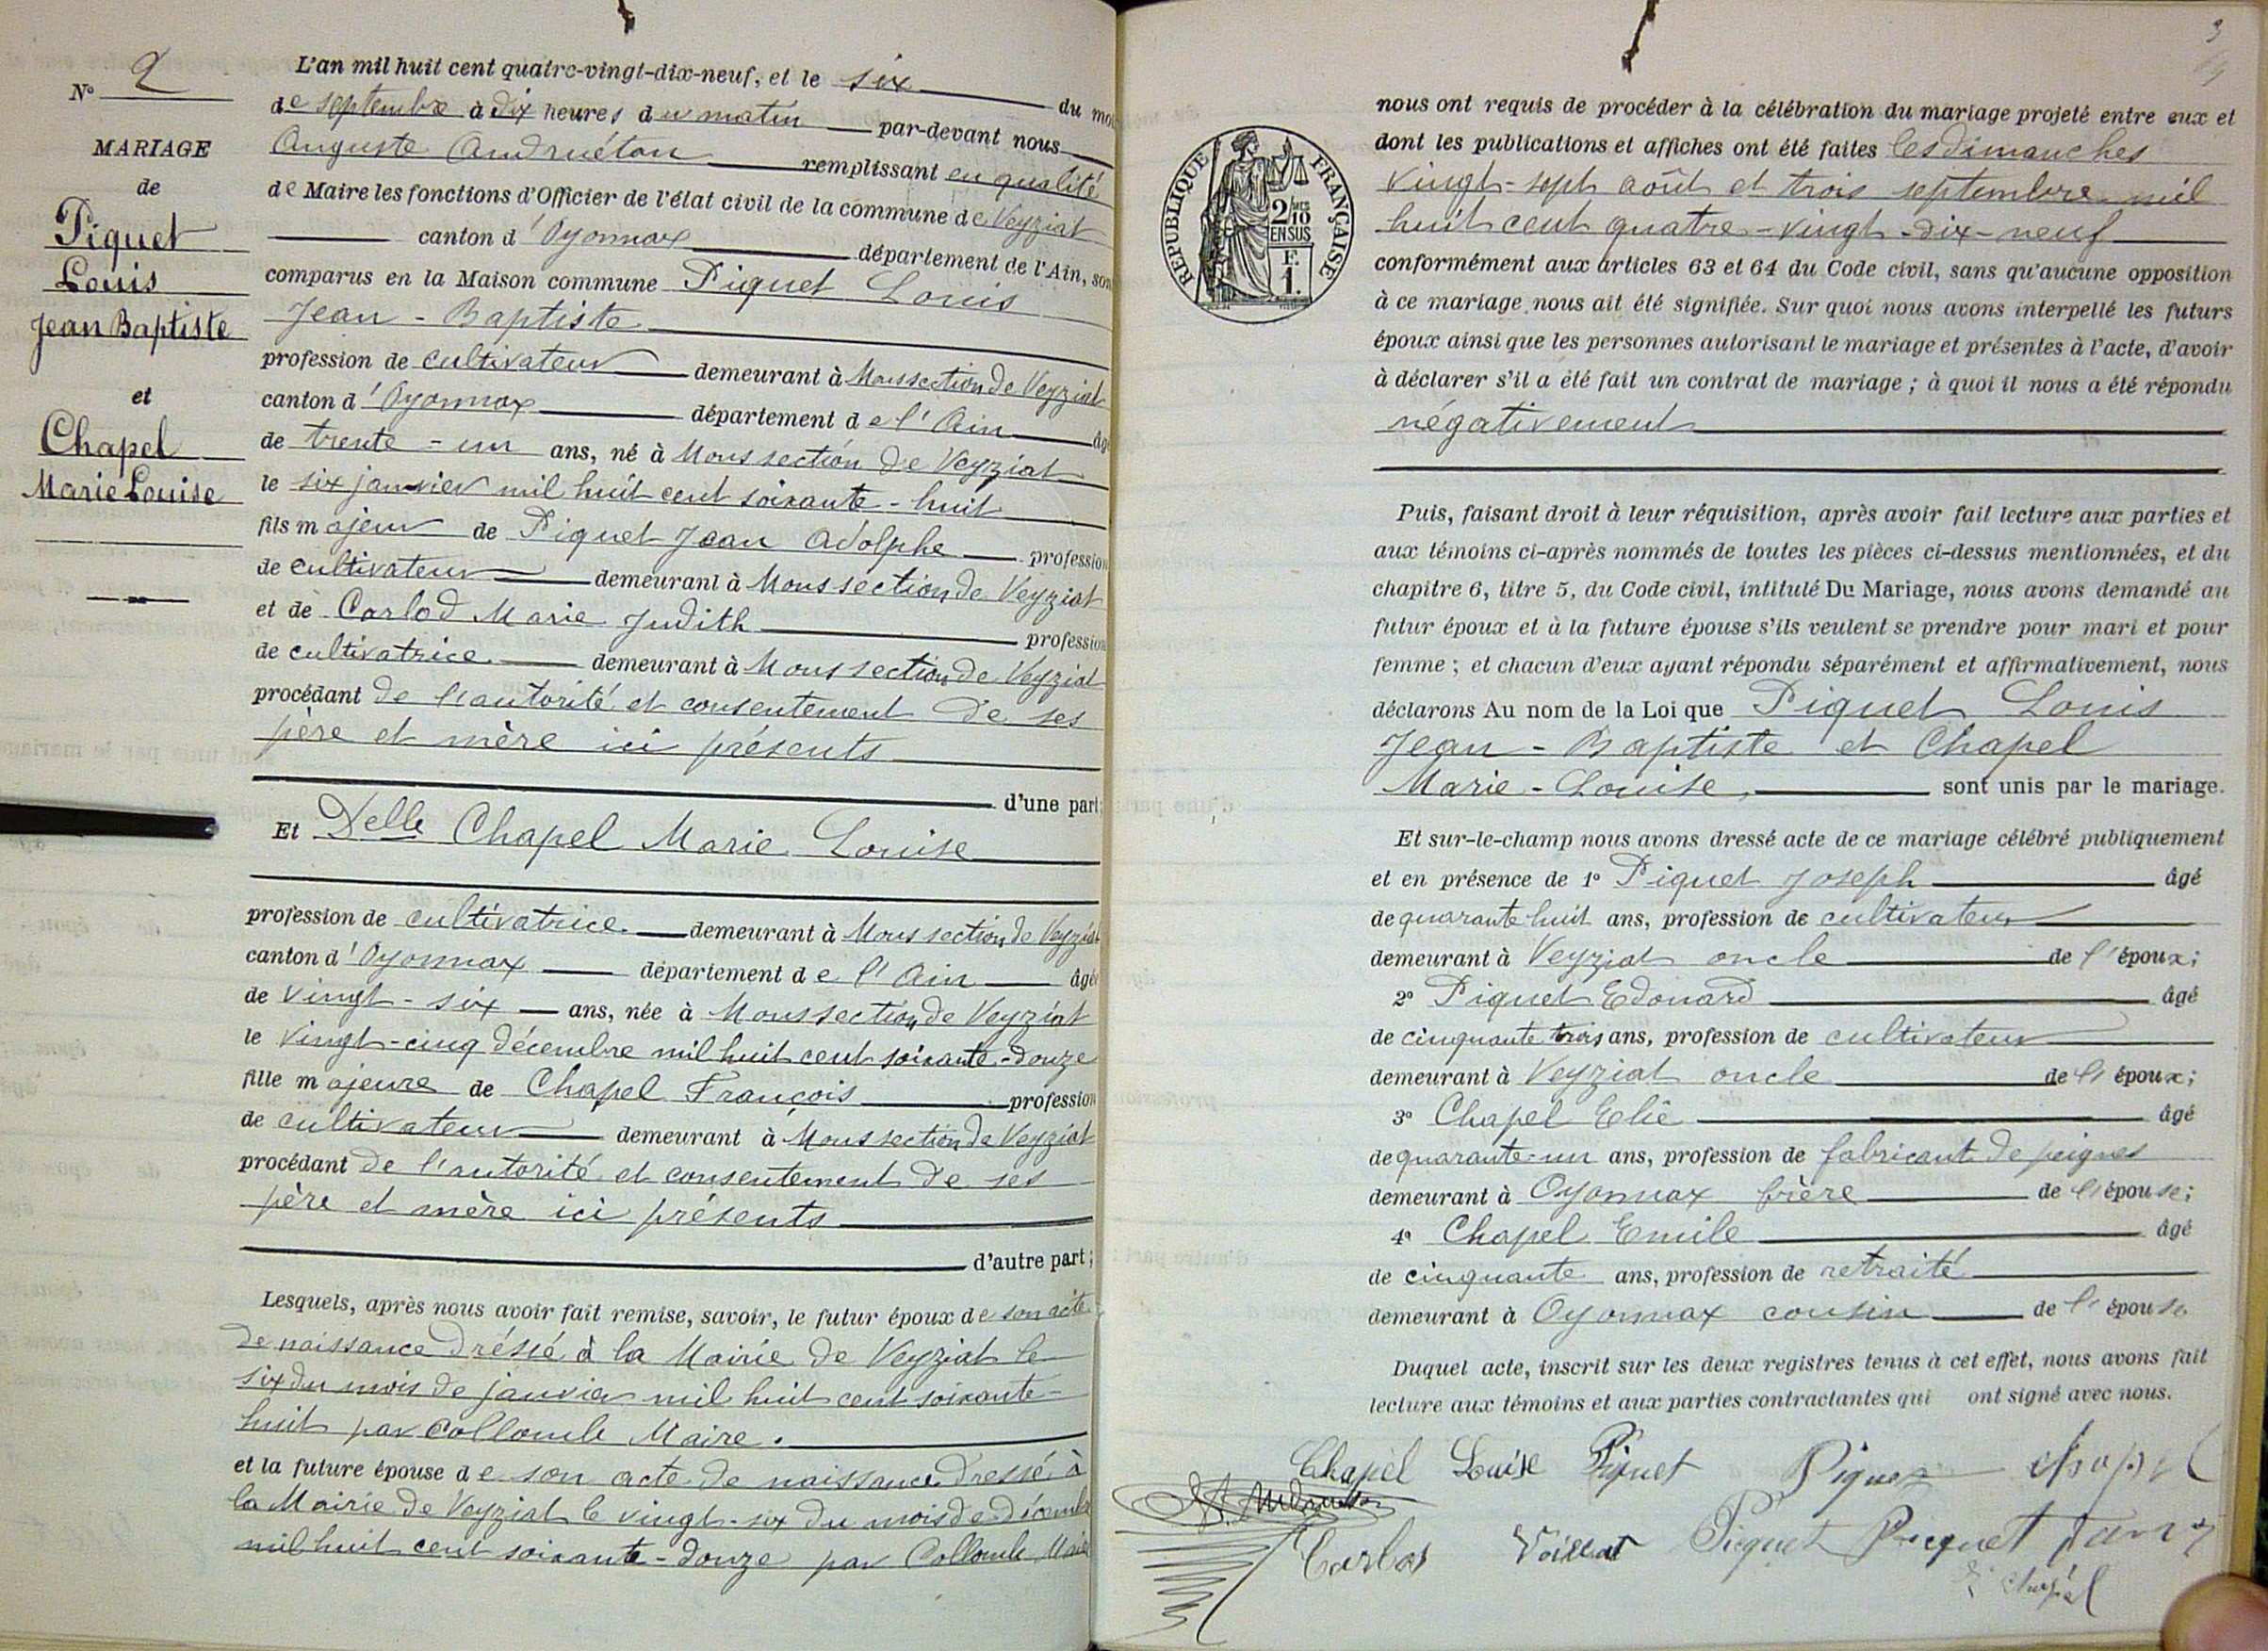 N° 2
MARIAGE
de
Piquet
Louis
Jean Baptiste
et
Chapel
Marie Louise
L'an mil huit cent quatre-vingt-dix-neuf, et le six du moi
de septembre à dix heures du matin par-devant nous
Auguste Andruéton remplissant en qualité
de Maire les fonctions d'Officier de l'état civil de la commune de Veyziat
canton d'Oyonnax département de l'Ain, son
comparus en la Maison commune Piquet Louis
Jean - Baptiste
profession de cultivateur demeurant à Mons section de Veyziat
canton d'Oyonnax département de l'Ain âgé
de trente - un ans, né à Mons section de Veyziat
le six janvier mil huit cent soixante - huit
fils majeur de Piquet Jean Adolphe profession
de cultivateur demeurant à Mons section de Veyziat
et de Carlod Marie Judith profession
de cultivatrice demeurant à Mons section de Veyziat
procédant de l'autorité et consentement de ses
père et mère ici présents
d'une part;
Et Delle Chapel Marie Louise
profession de cultivatrice demeurant à Mons section de Veyziat
canton d'Oyonnax département de l'Ain âgée
de vingt - six ans, née à Mons section de Veyziat
le vingt-cinq décembre mil huit cent soixante-douze
fille majeure de Chapel François profession
de cultivateur demeurant à Mons section de Veyziat
procédant de l'autorité et consentement de ses
père et mère ici présents
d'autre part;
Lesquels, après nous avoir fait remise, savoir, le futur époux de son acte
de naissance dréssé à la Mairie de Veyziat le
six du mois de janvier mil huit cent soixante-
huit par Collomb Maire.
et la future épouse de son acte de naissance dressé à
la Mairie de Veyziat le vingt-six du mois de décembre
mil huit cent soixante-douze par Collomb Maire
3
RÉPUBLIQUE FRANÇAISE
2/10
EN SUS
F.
1.
nous ont requis de procéder à la célébration du mariage projeté entre eux et
dont les publications et affiches ont été faites les dimanches
vingt-sept août et trois septembre mil
huit cent quatre-vingt-dix-neuf
conformément aux articles 63 et 64 du Code civil, sans qu'aucune opposition
à ce mariage nous ait été signifiée. Sur quoi nous avons interpellé les futurs
époux ainsi que les personnes autorisant le mariage et présentes à l'acte, d'avoir
à déclarer s'il a été fait un contrat de mariage ; à quoi il nous a été répondu
négativement
Puis, faisant droit à leur réquisition, après avoir fait lecture aux parties et
aux témoins ci-après nommés de toutes les pièces ci-dessus mentionnées, et du
chapitre 6, titre 5, du Code civil, intitulé Du Mariage, nous avons demandé au
futur époux et à la future épouse s'ils veulent se prendre pour mari et pour
femme ; et chacun d'eux ayant répondu séparément et affirmativement, nous
déclarons Au nom de la Loi que Piquet Louis
Jean - Baptiste et Chapel
Marie - Louise, sont unis par le mariage.
Et sur-le-champ nous avons dressé acte de ce mariage célébré publiquement
et en présence de 1° Piquet Joseph âgé
de quarante huit ans, profession de cultivateur
demeurant à Veyziat oncle de l'époux;
2° Piquet Edouard âgé
de cinquante trois ans, profession de cultivateur
demeurant à Veyziat oncle de l'époux;
3° Chapel Elie âgé
de quarante-un ans, profession de fabricant de peignes
demeurant à Oyonnax frère de l'épouse;
4° Chapel Emile âgé
de cinquante ans, profession de retraité
demeurant à Oyonnax cousin de l'épouse
Duquel acte, inscrit sur les deux registres tenus à cet effet, nous avons fait
lecture aux témoins et aux parties contractantes qui ont signé avec nous.
Chapel Louise Piquet Piquet chapel
A. Andruéton
Carlod Voissat Piquet Picquet
E. Chapel